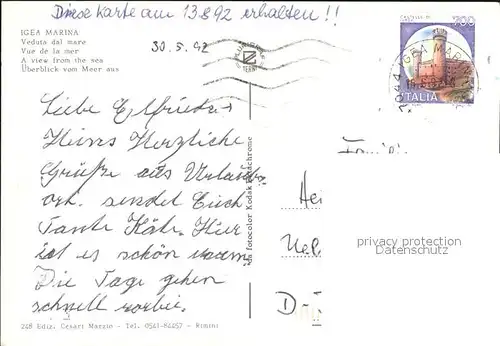 Diese Karte am 13.8.92 erhalten!!
IGEA MARINA
Veduta dal mare
Vue de la mer
A view from the sea
Überblick vom Meer aus
30.5.92
ITALIA
Liebe Elfriede
Heinz Herzliche
Grüße aus Urlaubs
ort. sendet Euch
Tante Käthe. Hier
ist es schön warm.
Die Tage gehen
schnell vorbei.
fotocolor Kodak Ektachrome
Famili
Hei
D-
privacy protection
Datenschutz
248 Ediz. Cesari Marzio - Tel. 0541-84457 - Rimini